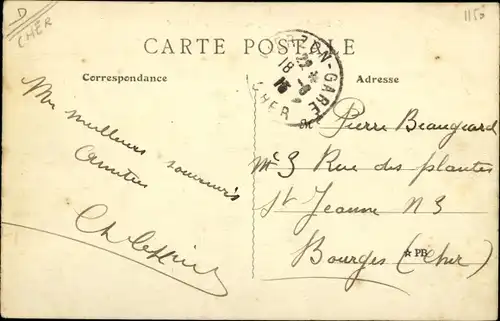 D
CHER
1150
CARTE POSTALE
Correspondance
Adresse
ZON-GARE
18 22
CHER
meilleurs souvenirs
Pierre Beaugeard
3 Rue des plantes
St Jeanne N 3
Bourges (Cher)
PR